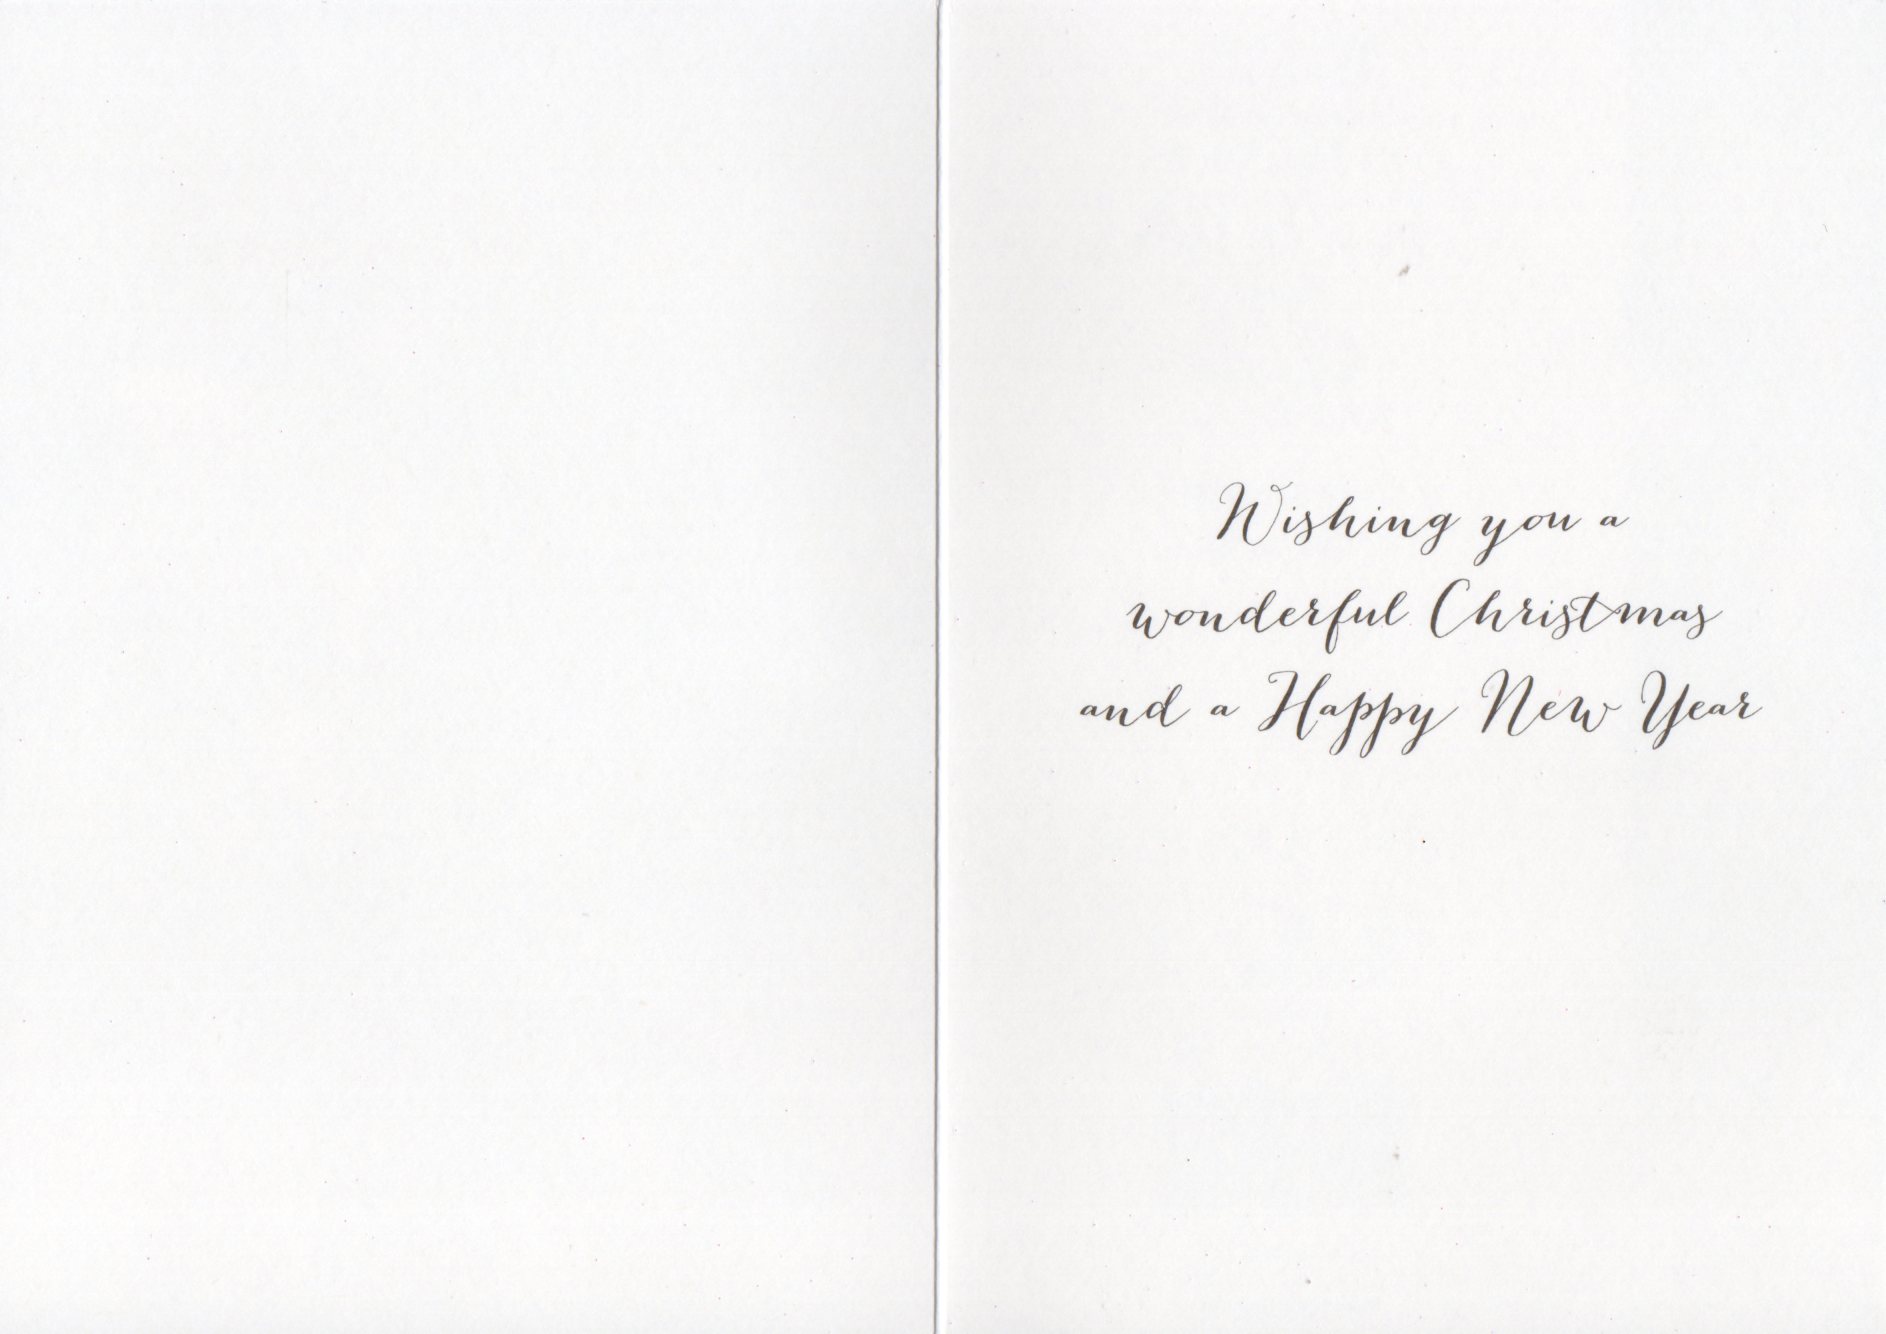 Wishing you a
wonderful Christmas
and a Happy New Year